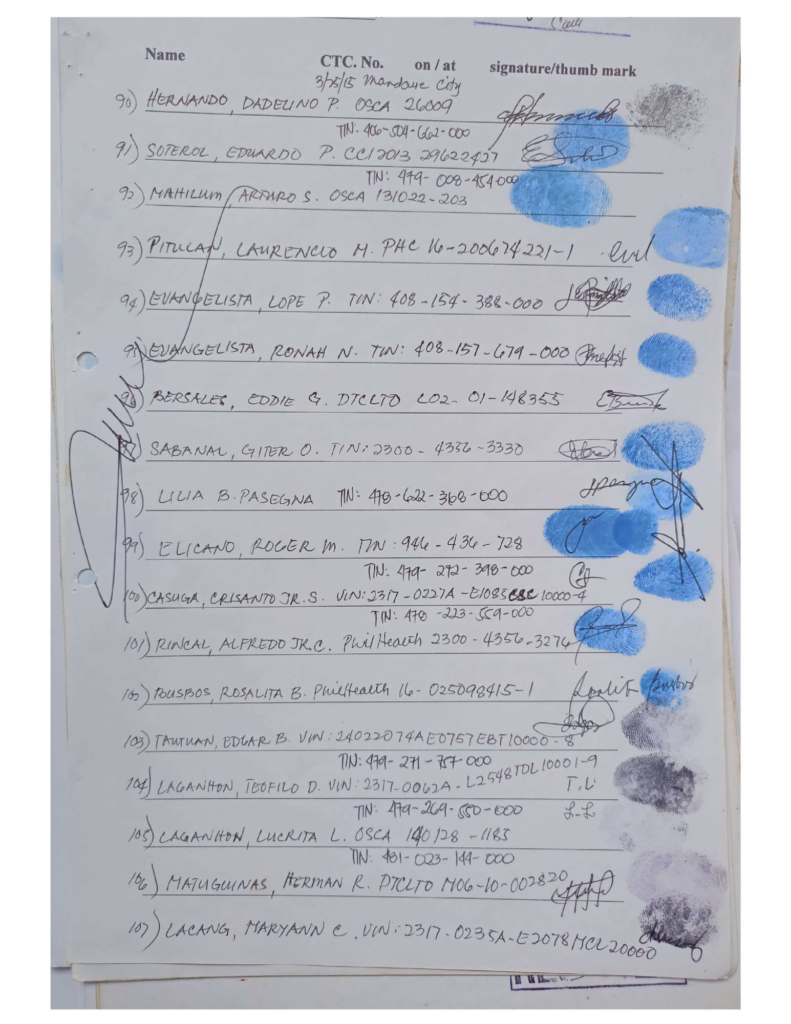 Name CTC. No. on / at signature/thumb mark
3/25/15 Mandaue City
90) HERNANDO, DADELINO P. OSCA 26009
TIN: 406-504-662-000
91) SOTEROL, EDUARDO P. CCI2013 29622427
TIN: 479-008-454-000
92) MAHILUM, ARTURO S. OSCA 131022-203
93) PITULAN, LAURENCIO M. PHC 16-200674221-1
94) EVANGELISTA, LOPE P. TIN: 408-154-388-000
95) EVANGELISTA, RONAH N. TIN: 408-157-679-000
96) BERSALES, EDDIE G. DTCLTO L02-01-148355
97) SABANAL, GITER O. TIN: 2300-4356-3330
98) LILIA B. PASEGNA TIN: 478-622-368-000
99) ELICANO, ROGER M. TIN: 946-436-728
TIN: 479-272-398-000
100) CASUGA, CRISANTO JR. S. VIN: 2317-0227A-E1085 10000-4
TIN: 478-223-559-000
101) RINCAL, ALFREDO JR. C. PhilHealth 2300-4356-3276
102) POUSBOS, ROSALITA B. PhilHealth 16-025098415-1
103) TAUTUAN, EDGAR B. VIN: 24022074AE0757EBT10000-8
TIN: 479-271-757-000
104) LAGANHON, TEOFILO D. VIN: 2317-0062A-L2548TDL10001-9 T.L
TIN: 479-269-550-000 L.L
105) LAGANHON, LUCRITA L. OSCA 140128-1185
TIN: 431-023-144-000
106) MATUGUINAS, HERMAN R. DTCLTO M06-10-002820
107) LACANG, MARYANN C. VIN: 2317-0235A-E2078MCL20000